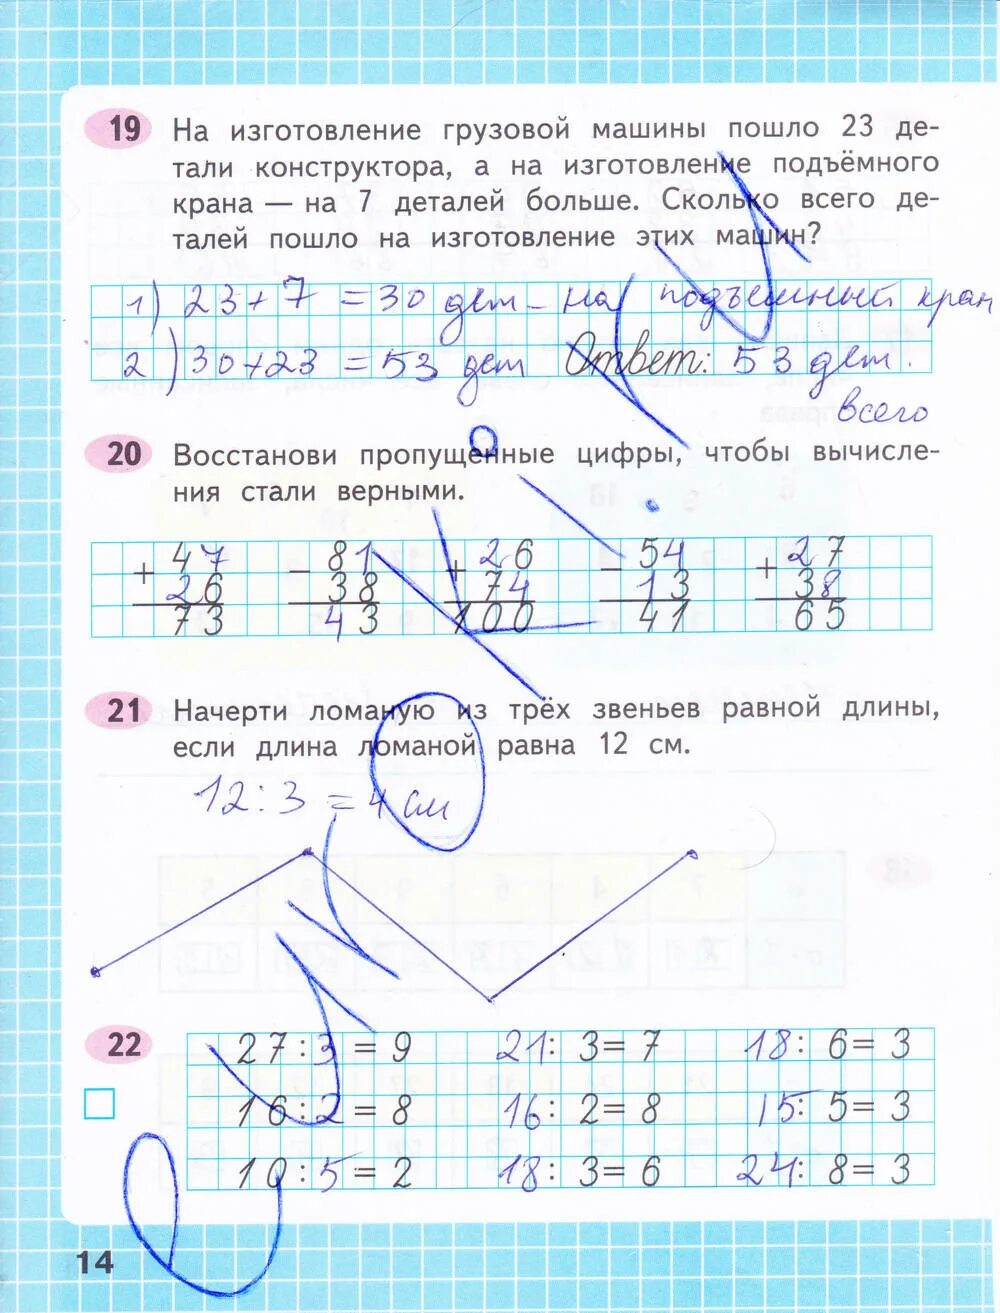 19 На изготовление грузовой машины пошло 23 де-
тали конструктора, а на изготовление подъёмного
крана — на 7 деталей больше. Сколько всего де-
талей пошло на изготовление этих машин?
1) 23 + 7 = 30 дет – на подъемный кран
2) 30 + 23 = 53 дет Ответ: 53 дет.
всего
20 Восстанови пропущенные цифры, чтобы вычисле-
ния стали верными.
47 81 26 54 27
+ – + – +
26 38 74 13 38
73 43 100 41 65
21 Начерти ломаную из трёх звеньев равной длины,
если длина ломаной равна 12 см.
12 : 3 = 4 см
22 27 : 3 = 9 21 : 3 = 7 18 : 6 = 3
16 : 2 = 8 16 : 2 = 8 15 : 5 = 3
10 : 5 = 2 18 : 3 = 6 24 : 8 = 3
14